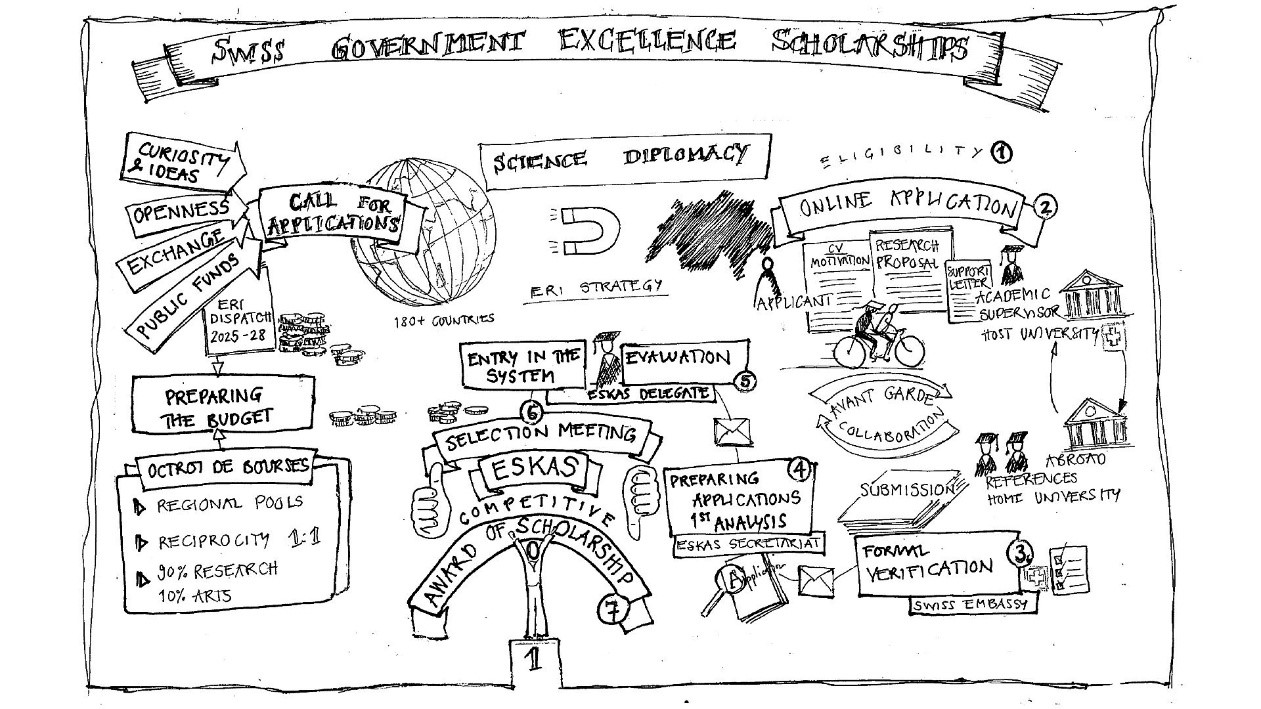 SWISS GOVERNMENT EXCELLENCE SCHOLARSHIPS
CURIOSITY
& IDEAS
OPENNESS
EXCHANGE
PUBLIC FUNDS
CALL FOR
APPLICATIONS
180+ COUNTRIES
ERI
DISPATCH
2025-28
PREPARING
THE BUDGET
OCTROI DE BOURSES
REGIONAL POOLS
RECIPROCITY 1:1
90% RESEARCH
10% ARTS
SCIENCE DIPLOMACY
ERI STRATEGY
ELIGIBILITY 1
ONLINE APPLICATION 2
CV
MOTIVATION
RESEARCH
PROPOSAL
SUPPORT
LETTER
APPLICANT
ACADEMIC
SUPERVISOR
HOST UNIVERSITY
AVANT GARDE
COLLABORATION
ABROAD
REFERENCES
HOME UNIVERSITY
SUBMISSION
FORMAL
VERIFICATION
3
SWISS EMBASSY
4
PREPARING
APPLICATIONS
1ST ANALYSIS
ESKAS SECRETARIAT
Application
EVALUATION
5
ESKAS DELEGATE
ENTRY IN THE
SYSTEM
6
SELECTION MEETING
ESKAS
COMPETITIVE
AWARD OF SCHOLARSHIP
7
1